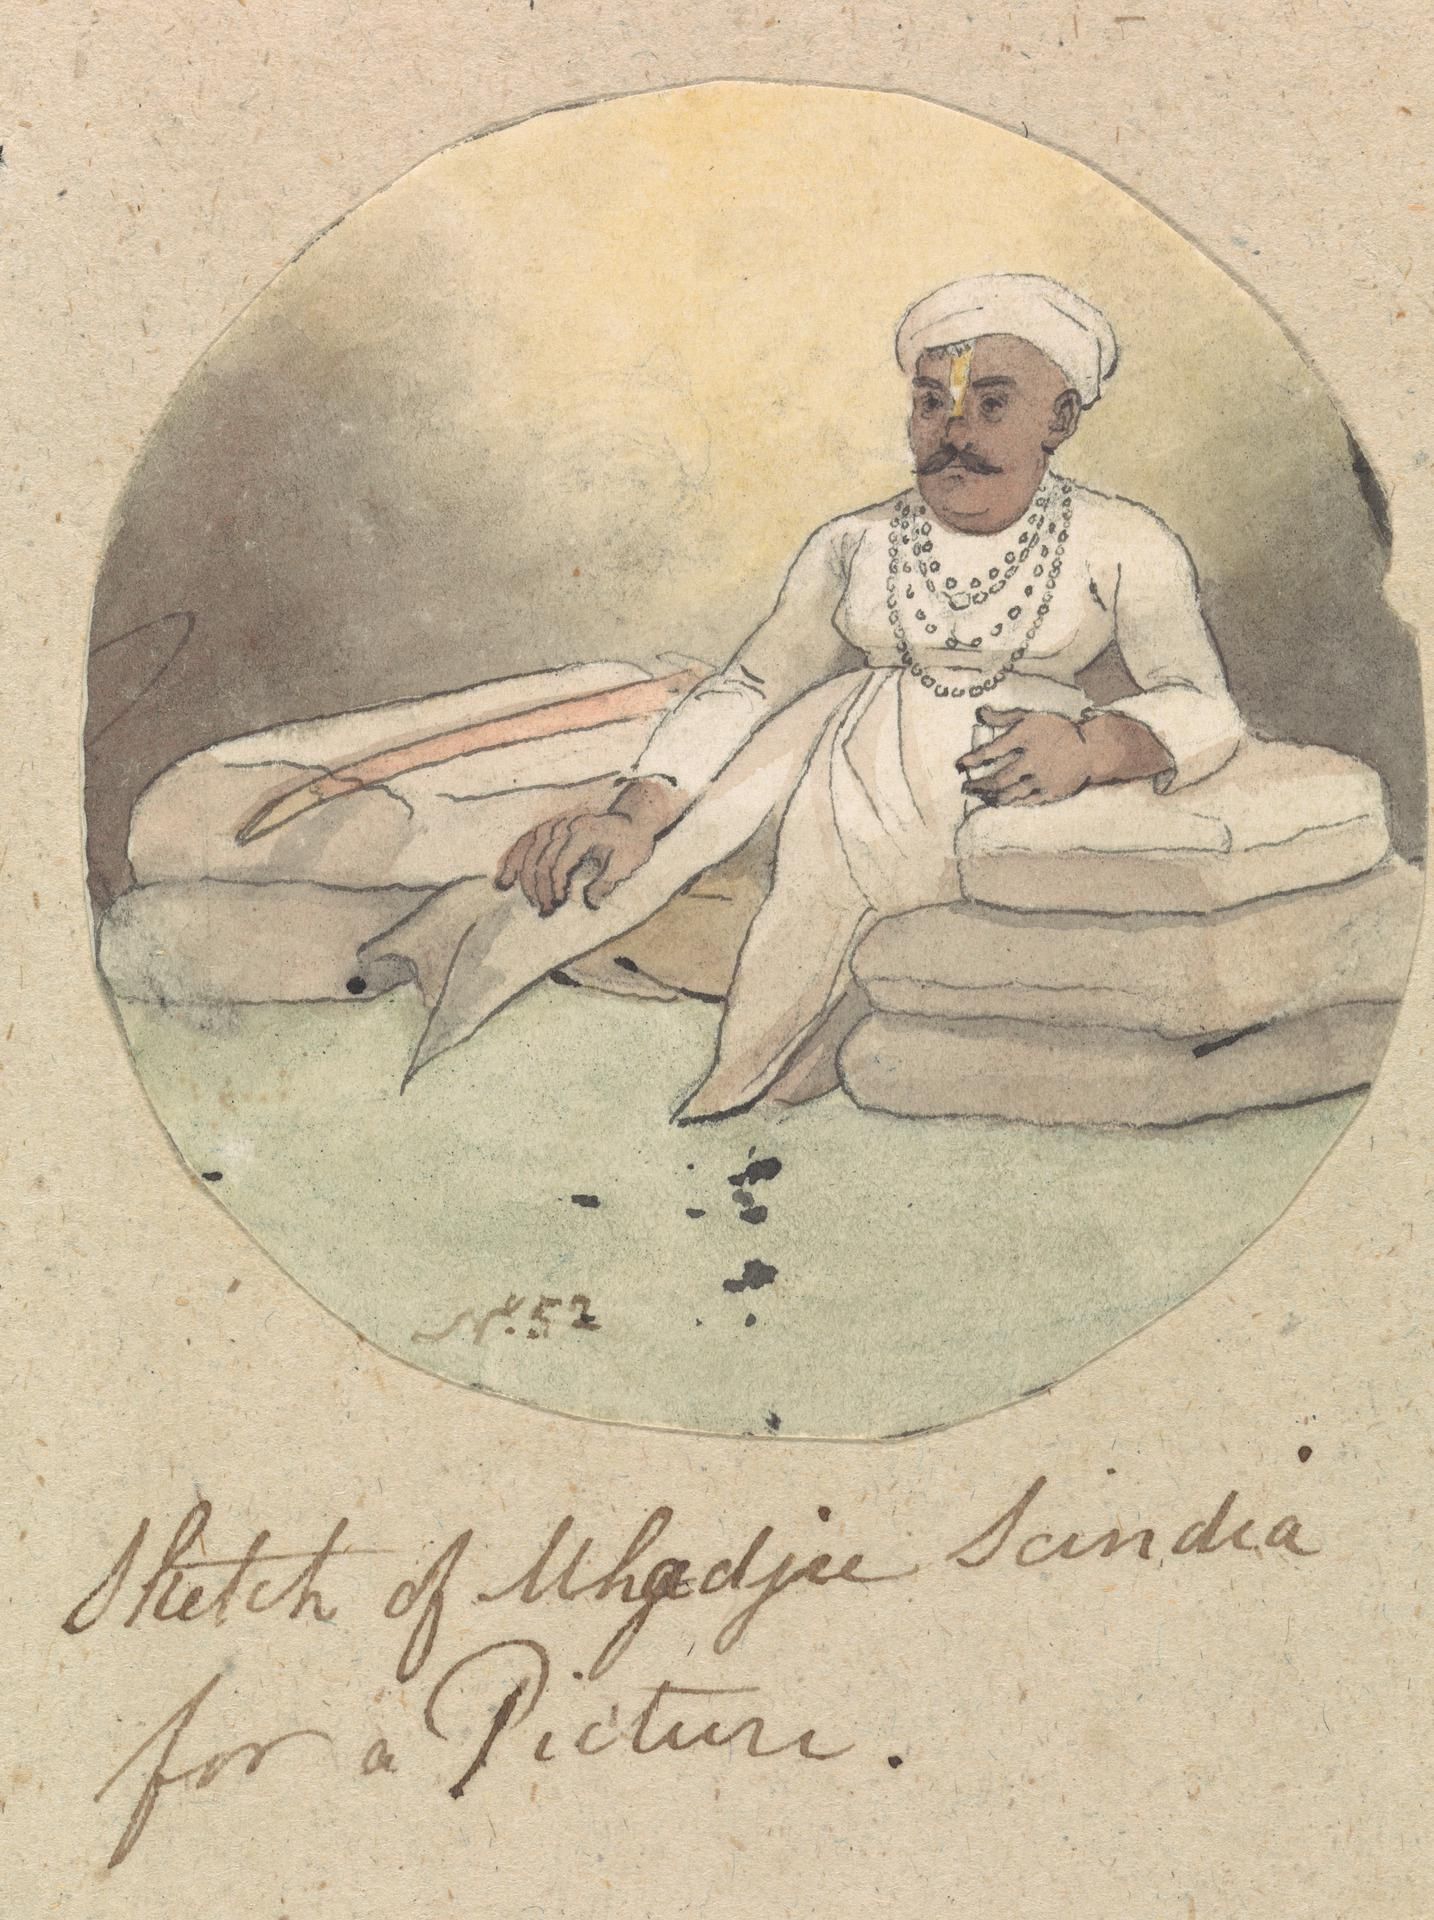 No. 52
Sketch of Mhadjee Scindia
for a Picture.